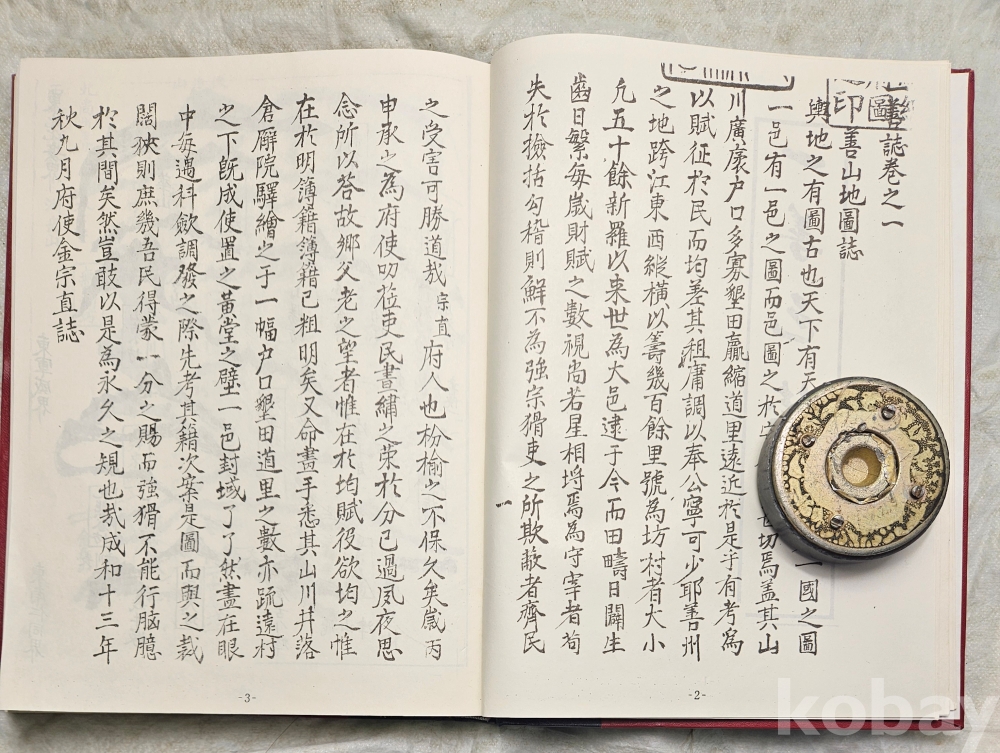 善誌卷之一
圖
印
善山地圖誌
輿地之有圖古也天下有天 一國之圖
一邑有一邑之圖而邑圖之於 切焉盖其山
川廣袤户口多寡墾田贏縮道里遠近於是乎有考焉
以賦征於民而均差其租庸調以奉公寧可少耶善州
之地跨江東西縱橫以籌幾百餘里號為坊村者大小
凡五十餘新羅以来世為大邑逮于今而田疇日闢生
齒日繁每歲財賦之數視尚若星相将焉為守宰者苟
失於撿括勾稽則鮮不為強宗猾吏之所欺蔽者齊民
-2-
之受害可勝道㢤宗直府人也枌榆之不保久矣歲丙
申承之為府使叨莅吏民晝繡之荣於分已過夙夜思
念所以答故鄉父老之望者惟在於均賦役欲均之惟
在於明簿籍簿籍已粗明矣又命畫手悉其山川井落
倉廨院驛繪之于一幅户口墾田道里之數亦疏逺村
之下既成使置之黃堂之壁一邑封域了了然盡在眼
中每遇科歛調發之際先考其籍次案是圖而與之裁
闊狹則庶幾吾民得蒙一分之賜而強猾不能行脑臆
於其間矣然豈敢以是為永久之規也㢤成和十三年
秋九月府使金宗直誌
-3-
kobay